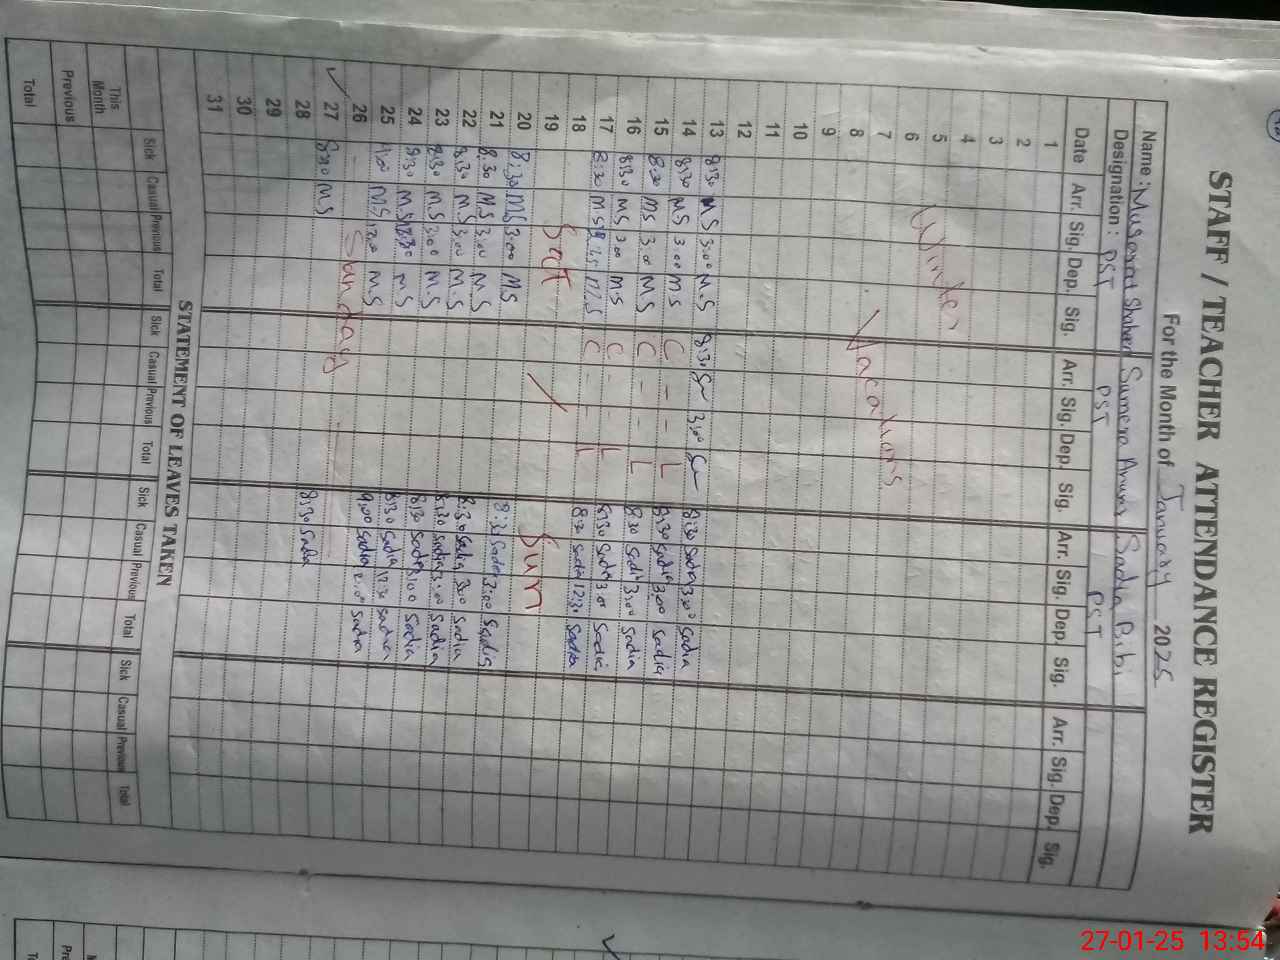 STAFF / TEACHER ATTENDANCE REGISTER
For the Month of January 2025
Name: Musarat Shaheen Sumera Anum Sadia Bibi
Designation: PST PST PST
Date Arr. Sig. Dep. Sig. Arr. Sig. Dep. Sig. Arr. Sig. Dep. Sig. Arr. Sig. Dep. Sig.
1
2
3
4
5
6
7
8
9
10
11
12
Winter Vacations
13 8:30 MS 3:00 M.S 8:30 3:00
14 8:30 MS 3:00 MS C - - L 8:30 Sadia 3:00 Sadia
15 8:30 MS 3:00 MS C - - L 8:30 Sadia 3:00 Sadia
16 8:30 MS 3:00 MS C - - L 8:30 Sadia 3:00 Sadia
17 8:30 MS M.S C - - L 8:30 Sadia 3:00 Sadia
18 8:30 Sadia 12:30 Sadia
19 Sat / Sun
20 8:30 MS 3:00 MS
21 8:30 MS 3:00 MS 8:30 Sadia 3:00 Sadia
22 8:30 MS 3:00 MS 8:30 Sadia 3:00 Sadia
23 8:30 MS 3:00 M.S 8:30 Sadia 3:00 Sadia
24 8:30 MS 12:30 MS 8:30 Sadia 3:00 Sadia
25 9:00 MS MS 8:30 Sadia 12:30 Sadia
26 Sunday 9:00 Sadia 2:00 Sadia
27 8:30 MS
28 8:30 Sadia
29
30
31
STATEMENT OF LEAVES TAKEN
Sick Casual Previous Total Sick Casual Previous Total Sick Casual Previous Total Sick Casual Previous Total
This Month
Previous
Total
27-01-25 13:54